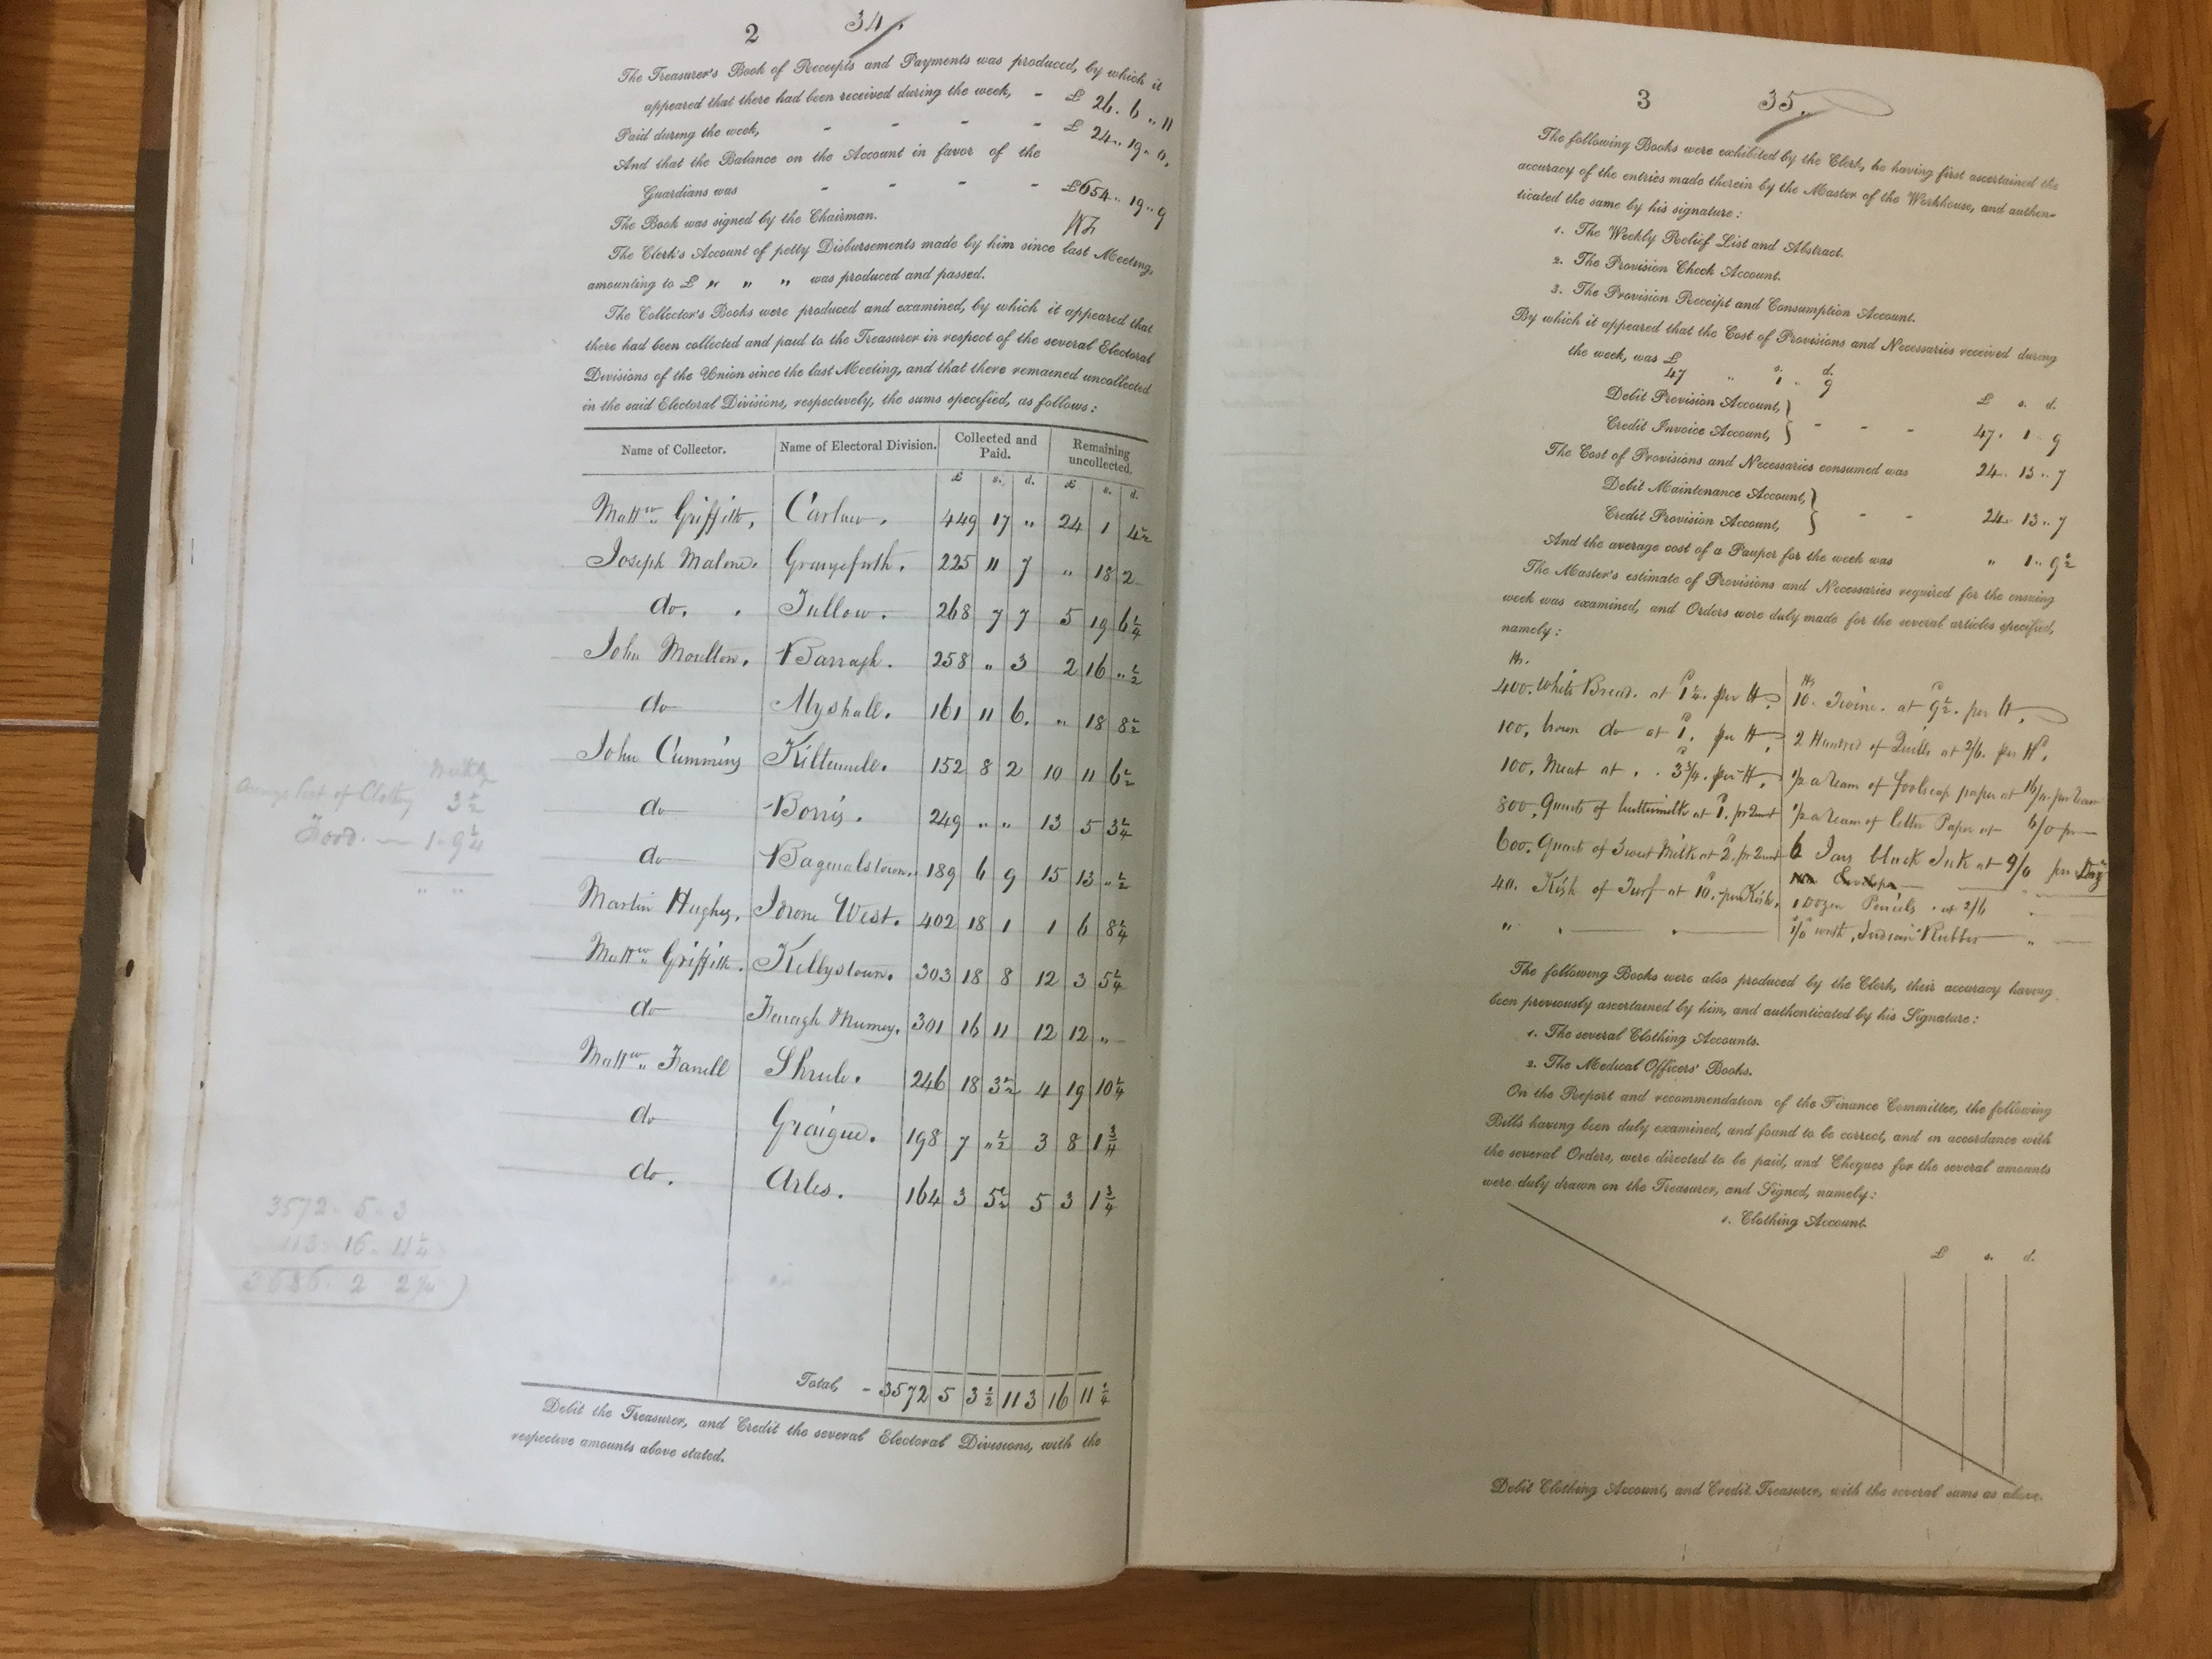 2 34
The Treasurer's Book of Receipts and Payments was produced, by which it
appeared that there had been received during the week, - £ 26. 6 .. 11
Paid during the week, - - - - £ 24.. 19.. 0,
And that the Balance on the Account in favor of the
Guardians was - - - - £654.. 19.. 9
The Book was signed by the Chairman.
The Clerk's Account of petty Disbursements made by him since last Meeting,
amounting to £ " " " was produced and passed.
The Collector's Books were produced and examined, by which it appeared that
there had been collected and paid to the Treasurer in respect of the several Electoral
Divisions of the Union since the last Meeting, and that there remained uncollected
in the said Electoral Divisions, respectively, the sums specified, as follows:
Name of Collector. Name of Electoral Division. Collected and Paid. Remaining uncollected.
£ s. d. £ s. d.
Mattw. Griffith, Carlow. 449 17 " 24 1 4½
Joseph Malone. Grangeforth. 225 11 7 " 18 2
do. Tullow. 268 7 7 5 19 6¼
John Moulton. Barragh. 258 " 3 2 16 "½
do Myshall. 161 11 6. " 18 8½
John Cummins Kiltennele. 152 8 2 10 11 6½
do Borris. 249 " " 13 5 3¼
do Bagnalstown. 189 6 9 15 13 "½
Martin Hughes, Idrone West. 402 18 1 1 6 8¼
Mattw. Griffith. Kellystown. 303 18 8 12 3 5¼
do Fenagh 301 16 11 12 12 "
Mattw. Farrell Shrule. 246 18 3½ 4 19 10¼
do Graigue. 198 7 "½ 3 8 1¾
do. Arles. 164 3 5½ 5 3 1¾
Total, - 3572 5 3½ 113 16 11¼
Debit the Treasurer, and Credit the several Electoral Divisions, with the
respective amounts above stated.
Weekly
Average Cost of Clothing 3½
Food. — 1. 9¼
" "
3572. 5. 3
113. 16. 11¼
3686. 2 2¼
3 35.
The following Books were exhibited by the Clerk, he having first ascertained the
accuracy of the entries made therein by the Master of the Workhouse, and authen-
ticated the same by his signature:
1. The Weekly Relief List and Abstract.
2. The Provision Check Account.
3. The Provision Receipt and Consumption Account.
By which it appeared that the Cost of Provisions and Necessaries received during
the week, was £ s. d.
47 " 1 .. 9
Debit Provision Account, £ s. d.
Credit Invoice Account, - - - 47. 1 9
The Cost of Provisions and Necessaries consumed was 24.. 13 .. 7
Debit Maintenance Account,
Credit Provision Account, - - 24. 13 .. 7
And the average cost of a Pauper for the week was " 1.. 9½
The Master's estimate of Provisions and Necessaries required for the ensuing
week was examined, and Orders were duly made for the several articles specified,
namely:
lbs.
400. White Bread. at 1¼. per lb
100, brown do at 1. per lb,
100, Meat at . . 3¾. per lb,
800. Quarts of buttermilk at 1. pr Quart
600. Quarts of Sweet Milk at 2. pr Quart
40. Kish of Turf at 10. per Kish,
lbs
10. Twine. at 9½. per lb.
2 Hundred of Quills at 2/6. per Hd.
½ a ream of foolscap paper at 16/0. per ream
½ a ream of letter Paper at 6/0 pr
6 Jars black Ink at 9/0 per Doz
1 Dozen Pencils. at 2/6
1/0 worth, Indian Rubber
The following Books were also produced by the Clerk, their accuracy having
been previously ascertained by him, and authenticated by his Signature:
1. The several Clothing Accounts.
2. The Medical Officers' Books.
On the Report and recommendation of the Finance Committee, the following
Bills having been duly examined, and found to be correct, and in accordance with
the several Orders, were directed to be paid, and Cheques for the several amounts
were duly drawn on the Treasurer, and Signed, namely:
1. Clothing Account.
£ s. d.
Debit Clothing Account, and Credit Treasurer, with the several sums as above.